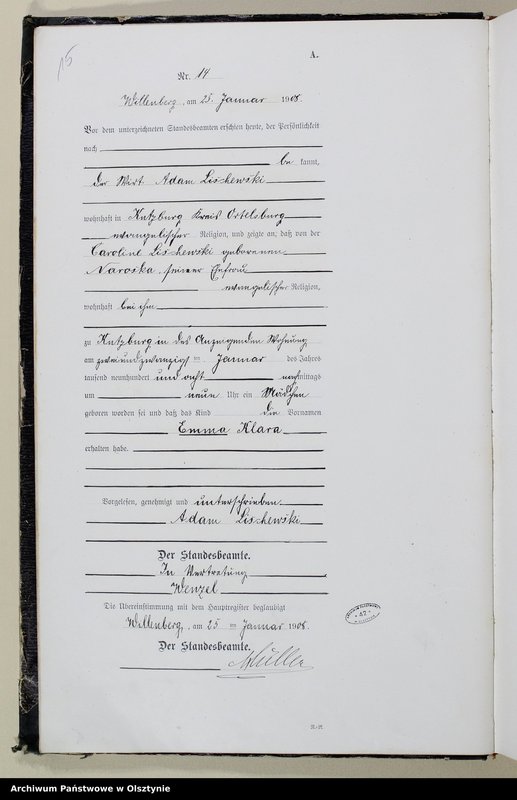 15
A.
Nr. 14
Willenberg, am 25. Januar 1908.
Vor dem unterzeichneten Standesbeamten erschien heute, der Persönlichkeit
nach
be kannt,
der Wirt Adam Lischewski
wohnhaft in Kutzburg Kreis Ortelsburg
evangelischer Religion, und zeigte an, daß von der
Caroline Lischewski geborenen
Naroska, seiner Ehefrau
evangelischer Religion,
wohnhaft bei ihm
zu Kutzburg in des Anzeigenden Wohnung
am zweiundzwanzigsten Januar des Jahres
tausend neunhundert und acht nachmittags
um neun Uhr ein Mädchen
geboren worden sei und daß das Kind die Vornamen
Emma Klara
erhalten habe.
Vorgelesen, genehmigt und unterschrieben
Adam Lischewski
Der Standesbeamte.
In Vertretung
Wenzel
Die Übereinstimmung mit dem Hauptregister beglaubigt
Willenberg, am 25 ten Januar 1908.
Der Standesbeamte.
Müller
Archiwum Państwowe w Olsztynie